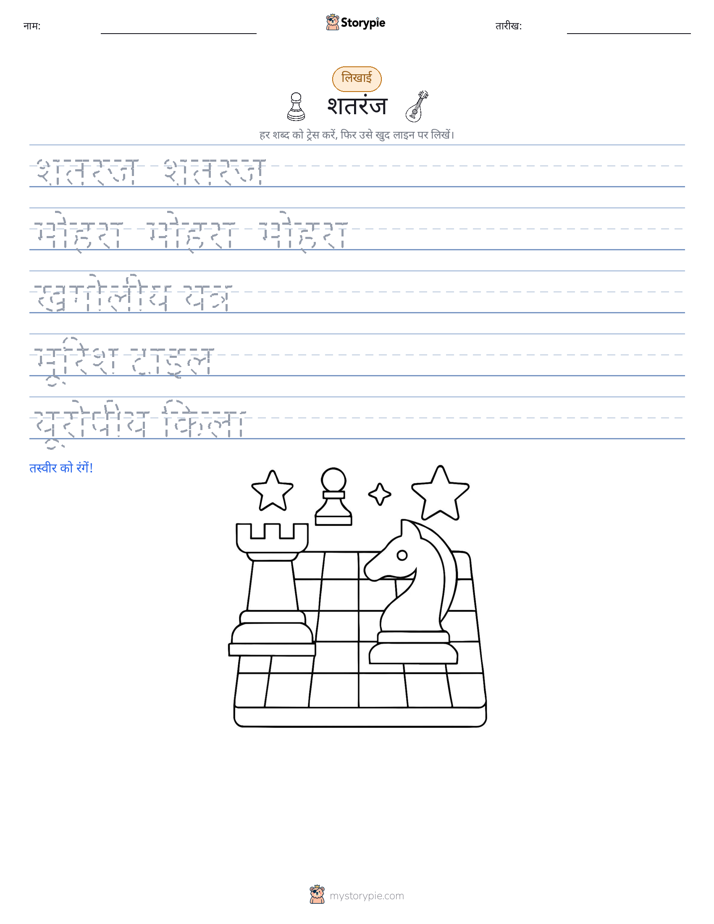 नाम:
Storypie
तारीख:
लिखाई
शतरंज
हर शब्द को ट्रेस करें, फिर उसे खुद लाइन पर लिखें।
शतरंज शतरंज
मोहरा मोहरा मोहरा
खगोलीय यंत्र
मूरिश टाइल
यूरोपीय किला
तस्वीर को रंगें!
mystorypie.com